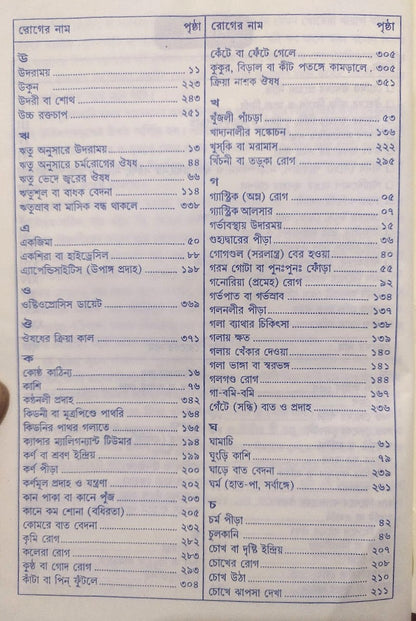 রোগের নাম পৃষ্ঠা
উ
উদরাময় ১১
উকুন ২২৩
উদরী বা শোথ ২৪৩
উচ্চ রক্তচাপ ২৫১
ঋ
ঋতু অনুসারে উদরাময় ১৩
ঋতু অনুসারে চর্মরোগের ঔষধ ৪৪
ঋতু ভেদে জ্বরের ঔষধ ৬৬
ঋতুশূল বা বাধক বেদনা ১১৪
ঋতুস্রাব বা মাসিক বন্ধ থাকলে ৩৩৮
এ
একজিমা ৫০
একশিরা বা হাইড্রেসিল ৮৮
এ্যাপেন্ডিসাইটিস (উপাঙ্গ প্রদাহ) ১৯৮
ও
ওষ্টিওপ্রোসিস ডায়েট ৩৬৯
ঔ
ঔষধের ক্রিয়া কাল ৩৭১
ক
কোষ্ঠ কাঠিন্য ১৬
কাশি ৭৬
কন্ঠনলী প্রদাহ ৩৪২
কিডনী বা মূত্রপিণ্ডে পাথরি ১৬৪
কিডনির পাথর গলাতে ১৬৫
ক্যান্সার ম্যালিগন্যান্ট টিউমার ১৯৪
কর্ণ বা শ্রবণ ইন্দ্রিয় ১৯৯
কর্ণ পীড়া ২০০
কর্ণমূল প্রদাহ ও যন্ত্রণা ২০২
কান পাকা বা কানে পুঁজ ২০৩
কানে কম শোনা (বধিরতা) ২০৫
কোমরে বাত বেদনা ২৩২
কৃমি রোগ ২৮২
কলেরা রোগ ২৮৩
কুষ্ঠ বা গোদ রোগ ২৯৩
কাঁটা বা পিন্ ফুঁটলে ৩০৪
রোগের নাম পৃষ্ঠা
কেঁটে বা ফেঁটে গেলে ৩০৫
কুকুর, বিড়াল বা কীট পতঙ্গে কামড়ালে . ৩০৫
ক্রিয়া নাশক ঔষধ ৩৫১
খ
খুঁজলী পাঁচড়া ৫৩
খাদ্যনালীর সঙ্কোচন ১৩৬
খুসকি বা মরামাস ২২২
খিঁচনী বা তড়কা রোগ ২৯৫
গ
গ্যাস্ট্রিক (অম্ল) রোগ ০৫
গ্যাস্ট্রিক আলসার ০৭
গর্ভাবস্থায় উদারময় ১৫
গুহ্যদ্বারের পীড়া ৩৬
গোগগুল (সরলান্ত্র) বের হওয়া ৪০
গরম গোটা বা পুনঃপুনঃ ফোঁড়া ৫৫
গনোরিয়া (প্রমেহ) রোগ ৯২
গর্ভপাত বা গর্ভস্রাব ১৩৪
গলনলীর পীড়া ১৩৭
গলা ব্যাথার চিকিৎসা ১৩৮
গলায় ক্ষত ১৩৯
গলায় খেঁকার দেওয়া ১৪০
গলা ভাঙ্গা বা স্বরভঙ্গ ১৪১
গলগণ্ড রোগ ১৪৪
গা-বমি-বমি ১৬৭
গেঁটে (সন্ধি) বাত ও প্রদাহ ২৩৬
ঘ
ঘামাচি ৬১
ঘুংড়ি কাশি ৭৯
ঘাড়ে বাত বেদনা ২৩৯
ঘর্ম (হাত-পা, সর্বাঙ্গে) ২৬১
চ
চর্ম পীড়া ৪২
চুলকানি ৪৬
চোখ বা দৃষ্টি ইন্দ্রিয় ২০৭
চোখের রোগ ২০৮
চোখ উঠা ২১০
চোখে ঝাপসা দেখা ২১১